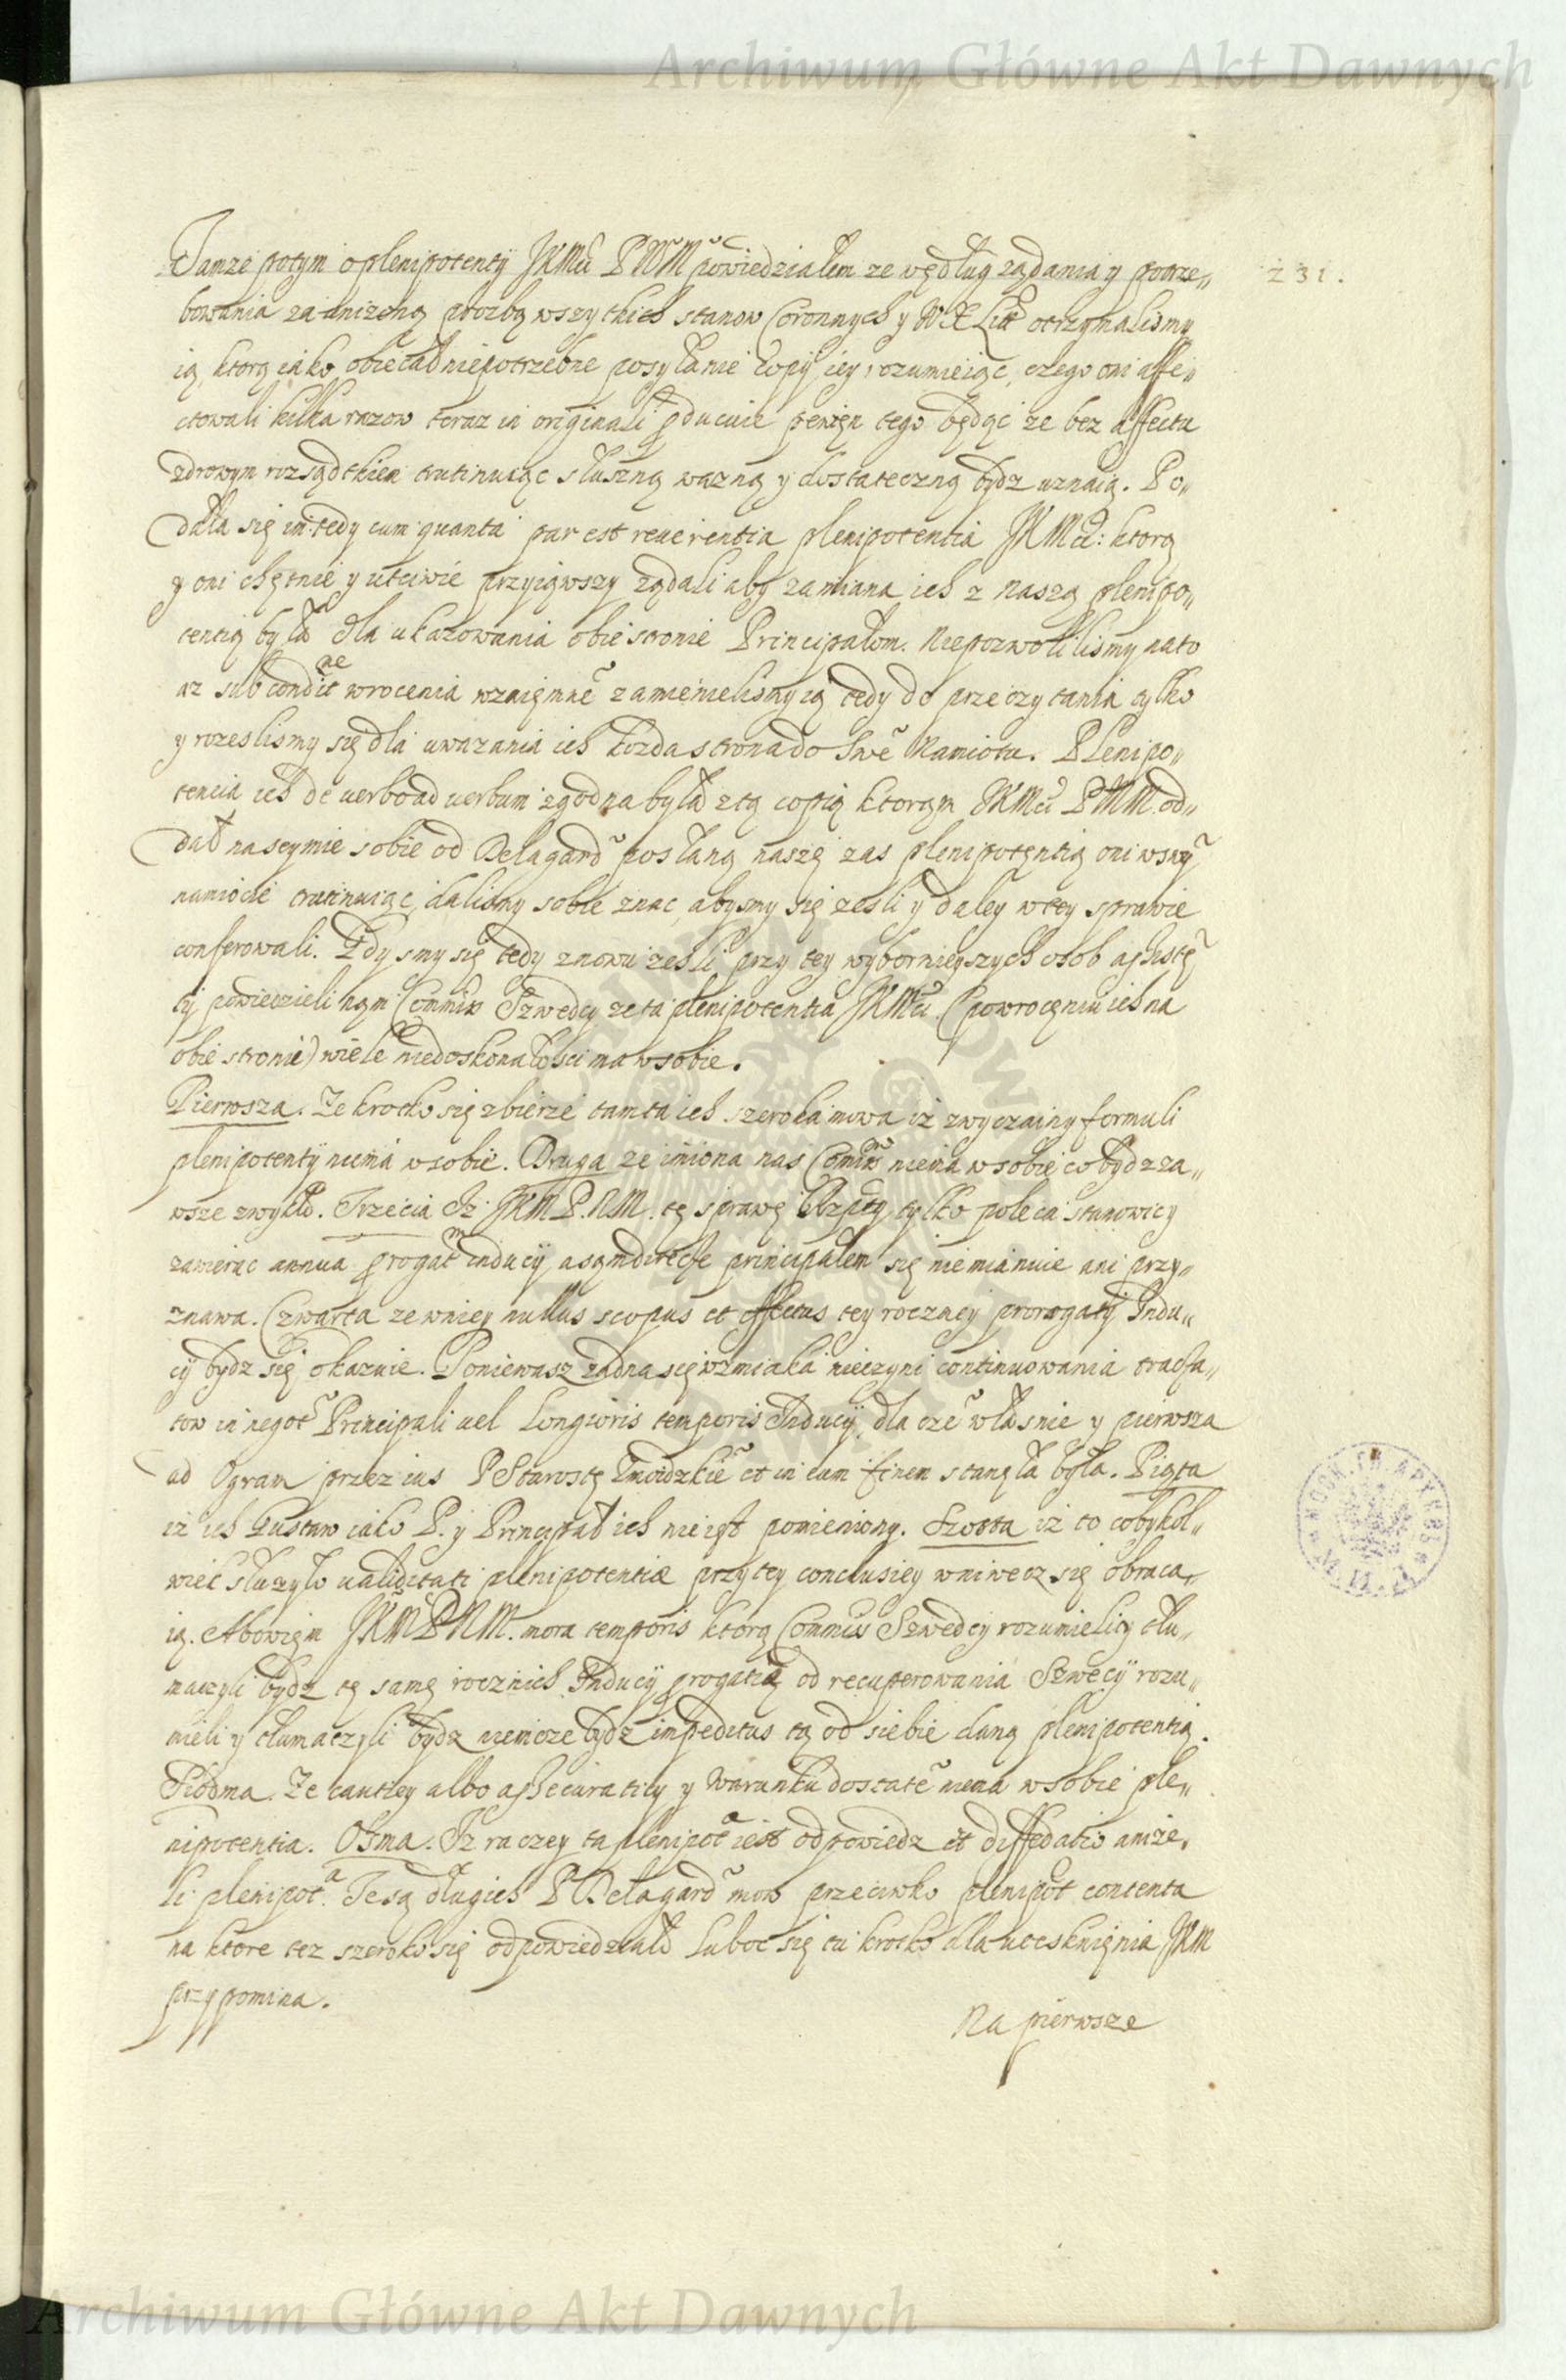 Archiwum Główne Akt Dawnych
231.
Tamze potym o plenipotenty JKMci P N M powiedziałem ze według ządania y potrze„
bowania za unizoną prozbą wszytkich stanow Coronnych y W X Lit otrzymalismy
ią, ktorą iako obiecał niepotrzebne posyłanie Copij iey rozumieiąc, czego oni affe„
ctowali kilka razow teraz in originali producuie pewien tego będąc ze bez affectu
zdrowym rozsądkiem trutinuiąc słuszną wazną y dostateczną bydz uznaią. Po„
dała się im tedy cum quanta par est reuerentia plenipotentia JKMci: ktorą
y oni chętnie y utciwie przyiąwszy ządali aby zamiana ich z naszą plenipo„
tentią była dla ukazowania obie stronie Principałom. Niepozwolilismy na to
az sub condit̃ne wrocenia wzaięmnẽ zamienielismy ią tedy do przeczytania tylko
y rozeslismy się dla uwazania ich kozda strona do swẽ Namiotu. Plenipo„
tencia ich de uerbo ad uerbum zgodna była z tą copią ktorąm JKMci P N M. od„
dał na seymie sobie od Delagard̃ posłaną naszę zas plenipotentią oni w swỹ
namiocie trutinuiąc, dalismy sobie znac, abysmy się zesli y daley w tey sprawie
conferowali. Gdysmy się tedy znowu zesli przy tey wybornieyszych osob assistẽ
ty powiedzieli nąm Commiss Szwedcy ze ta plenipotentia JKMci (po wrocęniu ich na
obie stronie) wiele niedoskonałosci ma w sobie.
Pierwsza. Ze krotko się zbierze tamta ich szeroka mowa iz zwyczainy formuli
plenipotentÿ niema w sobie. Druga ze imiona nas Comiss niema w sobie co bydz za„
wsze zwykło. Trzecia Iz JKM P. N M. tę sprawę Rzptey tylko poleca stanowicy
zawierac annua progatm Inducij a sąm directe principalem się niemianuie ani przy„
znawa. Czwarta ze w niey nullus scopus et effectus tey roczney prorogatÿ Indu„
cÿ bydz się okazuie. Poniewasz zadna się wzmiaka nieczyni continuowania tracta„
tow in negot̃ Principali uel Longioris temporis Inducÿ, dla czẽ własnie y pierwsza
ad Ogram przez ius P Starostę Zmoidzkiẽ et in eum finem stanęła była. Piąta
iz ich Gustaw iako P. y Principał ich nie iest pomieniony. Szosta iz to cobykol„
wiek słuzyło ualiditati plenipotentiæ przy tey conclusiey wniwecz się obraca„
ią. Abowięm JKM P N M. mora temporis ktorą Commiss Szwedcy rozumielicy tłu„
maczyli bydz tę samę rocznich Inducÿ progatią od recuperowania Szwecÿ rozu„
mieli y tłumaczyli bydz niemoze bydz impeditus tą od siebie daną plenipotentią.
Siodma. Ze cautiey albo assecuraticy y warunku dostatẽ niema w sobie ple„
nipotentia. Osma. Iz raczey ta plenipota iest odpowiedz et diffidatio anize„
li plenipota. Te są długich P Delagard̃ mow przeciwko plenipot contenta
na ktore tez szeroko się odpowiedziało luboc się tu krotko dla uteskniẽnia JKM
przypomina.
Na pierwsze
Archiwum Główne Akt Dawnych